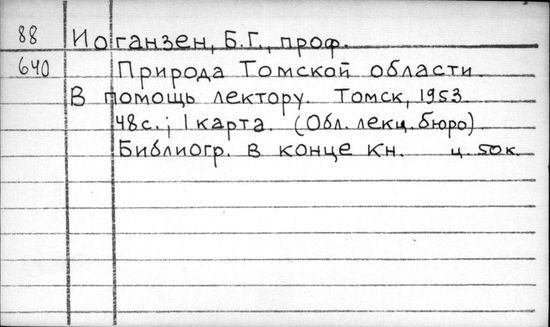 88 Иоганзен, Б.Г., проф.
640 Природа Томской области.
В помощь лектору. Томск, 1953.
48с.; 1 карта. (Обл. лекц. бюро).
Библиогр. в конце кн. ц. 50к.